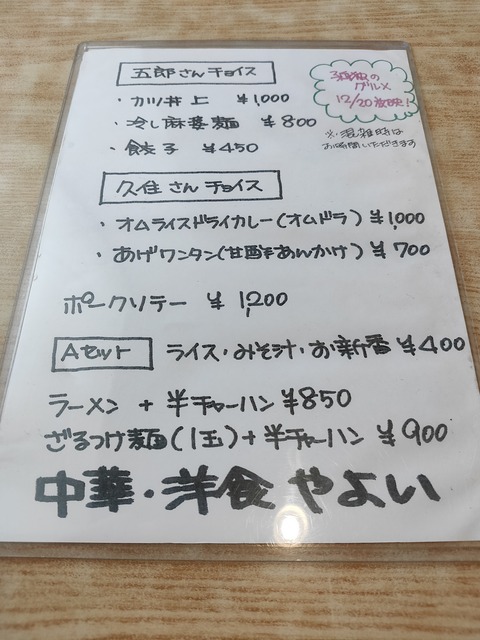 五郎さんチョイス
・カツ丼上 ¥1,000
・冷し麻婆麺 ¥800
・餃子 ¥450
孤独の
グルメ
12/20放映!
※混雑時は
お時間いただきます
久住さんチョイス
・オムライスドライカレー(オムドラ) ¥1,000
・あげワンタン(甘酢あんかけ) ¥700
ポークソテー ¥1,200
Aセット ライス・みそ汁・お新香 ¥400
ラーメン + 半チャーハン ¥850
ざるつけ麺(1玉)+半チャーハン ¥900
中華・洋食 やよい